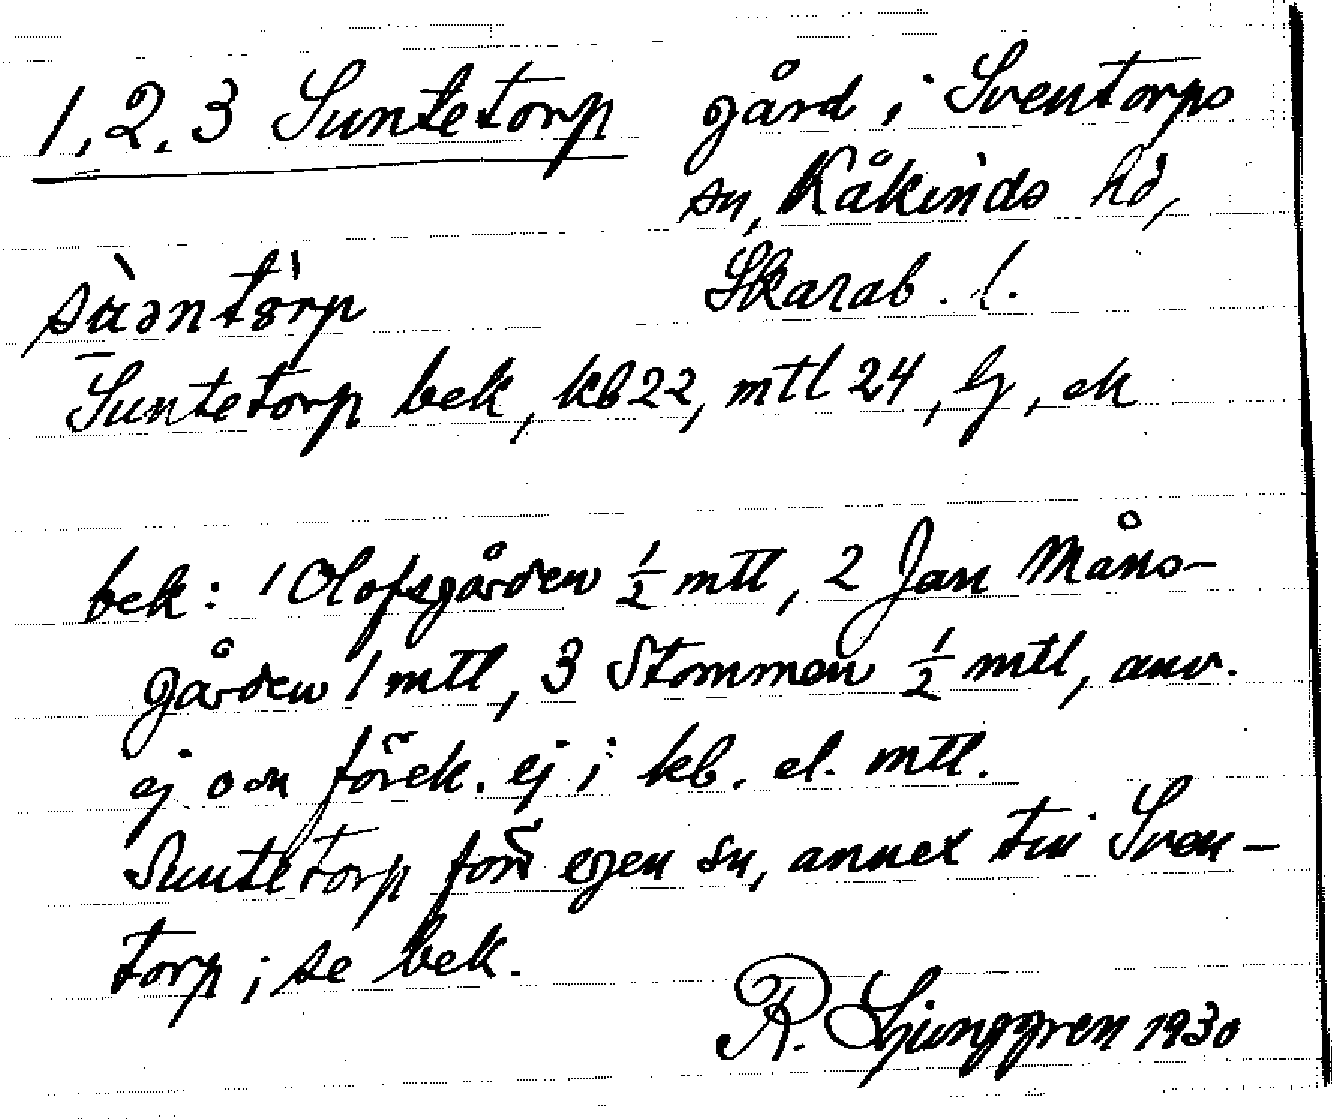 1, 2, 3 Suntetorp gård i Sventorps
sn, Kåkinds hd,
Skarab. l.
Suntetorp bek, kb 22, mtl 24, lj, ek
bek: 1 Olofsgården ½ mtl, 2 Jan Måns-
gården 1 mtl, 3 Stommen ½ mtl, anv.
ej o förek. ej i kb. el. mtl.
Suntetorp förr egen sn, annex till Sven-
torp; se bek.
R. Ljunggren 1930